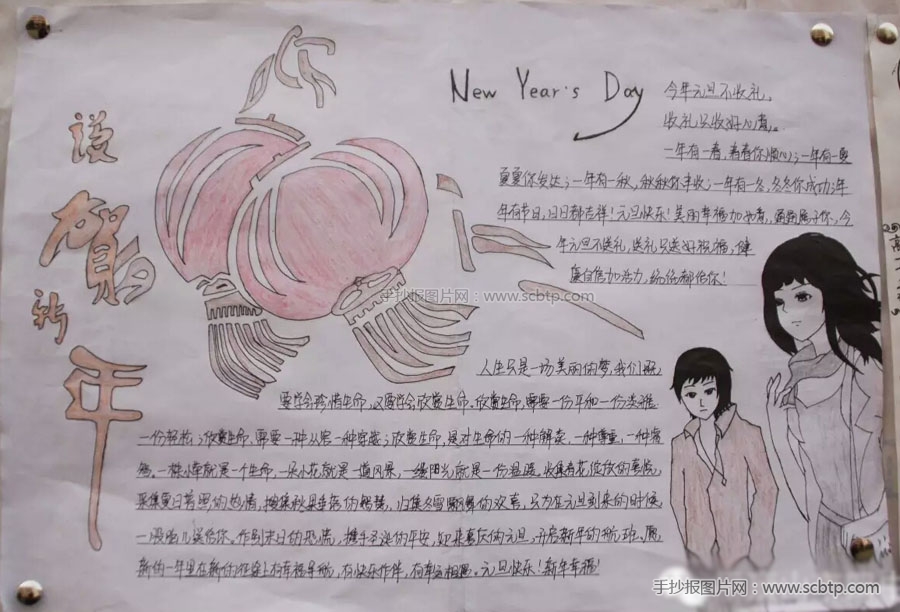 New Year's Day
谨
贺
新
年
今年元旦不收礼,
收礼只收好心意。
一年有一春,春春你顺心;一年有一夏
夏夏你发达;一年有一秋,秋秋你丰收;一年有一冬,冬冬你成功;年
年有节日,日日都吉祥!元旦快乐!美丽幸福加如意,通通属于你,今
年元旦不送礼,送礼只送好祝福,健
康自信加活力,统统都给你!
手抄报图片网:www.scbtp.com
人生只是一场美丽的梦,我们既
要学会珍惜生命,又要学会欣赏生命。欣赏生命,需要一份平和一份淡雅
一份轻松;欣赏生命,需要一种从容一种穿透;欣赏生命,是对生命的一种解读,一种尊重,一种
一株小草就是一个生命,一朵小花就是一道风景,一缕阳光就是一份温暖。收集春花绽放的喜悦,
采集夏日普照的热情,搜集秋果垂落的,归集冬雪飘舞的欢喜,只为在元旦到来的时候
一股脑儿送给你。作别末日的恐慌,携手圣诞的平安,如来喜庆的元旦,开启新年的航班。愿
新的一年里在新的征途上有幸福导航,有快乐作伴,有幸运相随。元旦快乐!新年幸福!
手抄报图片网:www.scbtp.com